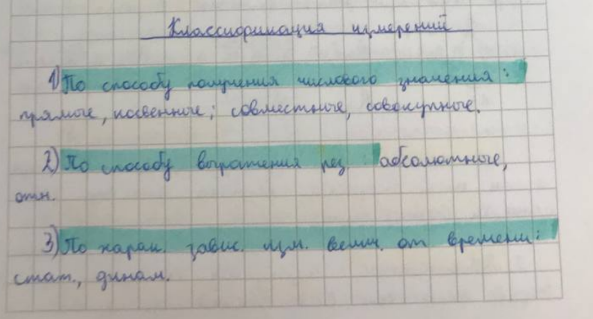 Классификация измерений
1) По способу получения числового значения:
прямые, косвенные; совместные, совокупные.
2) По способу выражения рез абсолютные,
отн.
3) По харак. завис. изм. велич. от времени:
стат., динам.